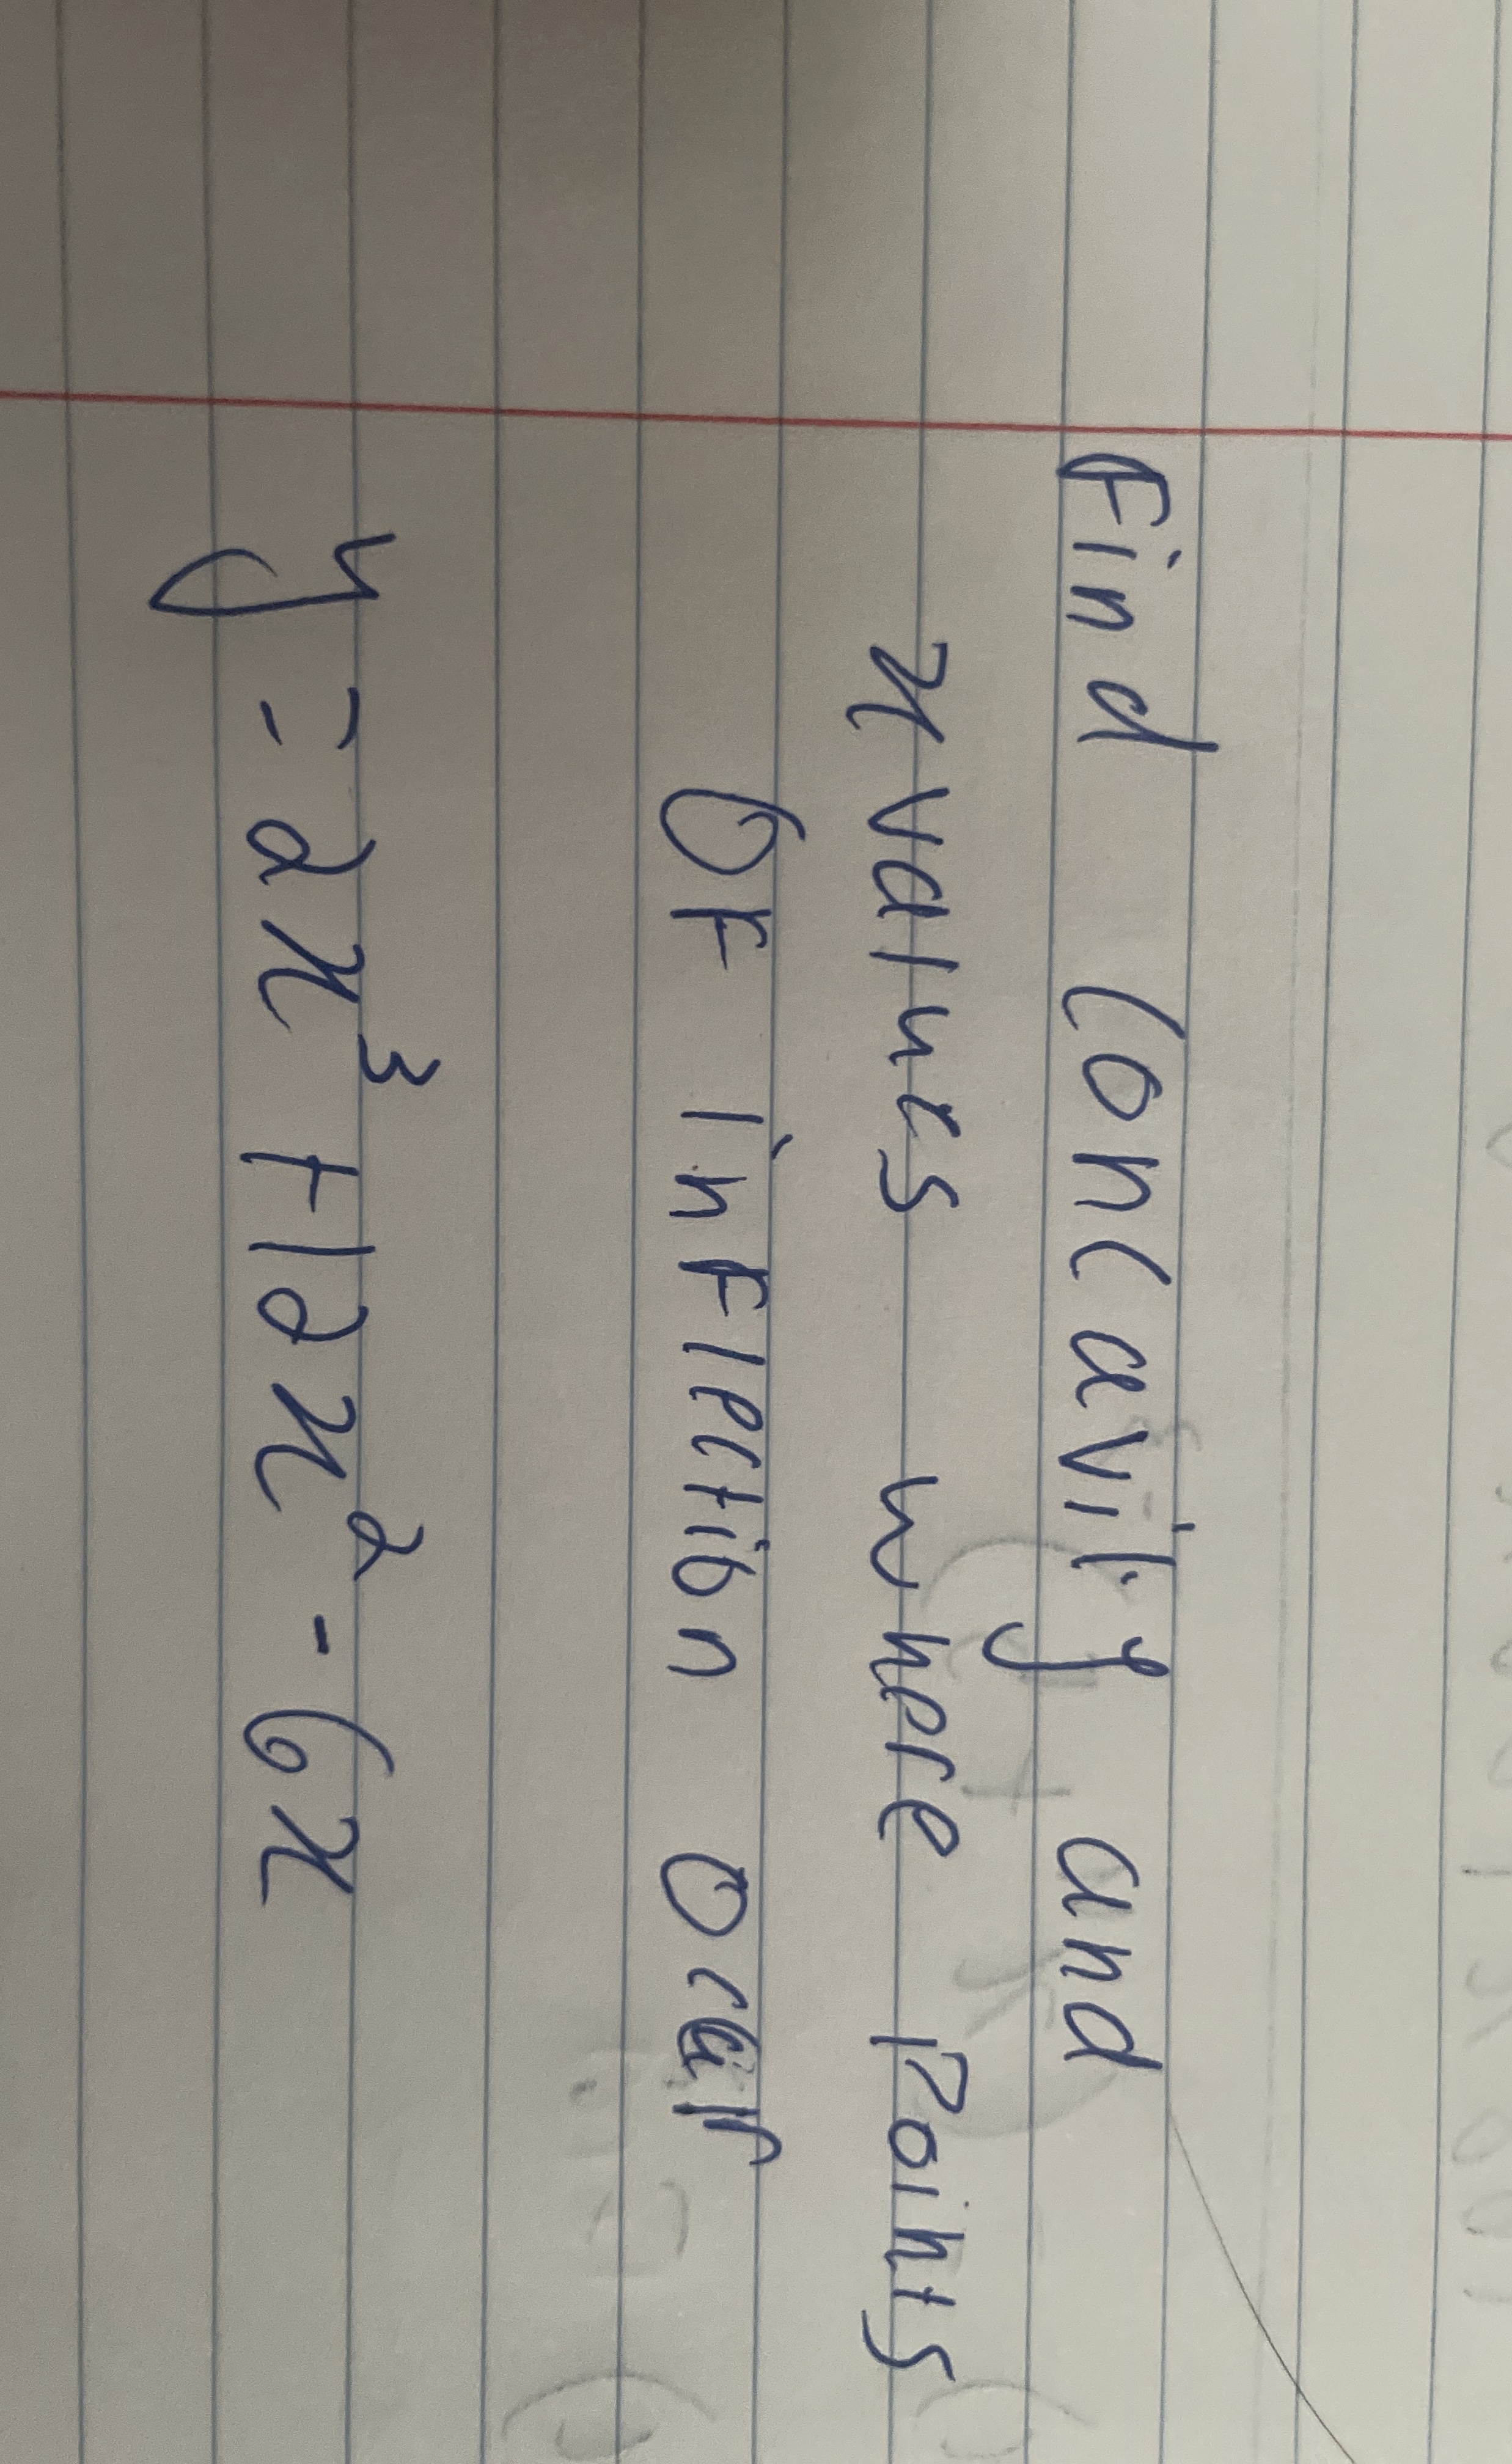 Find concavity and
x values where points
of inflection occur
y = 2x³ + 12x² - 6x